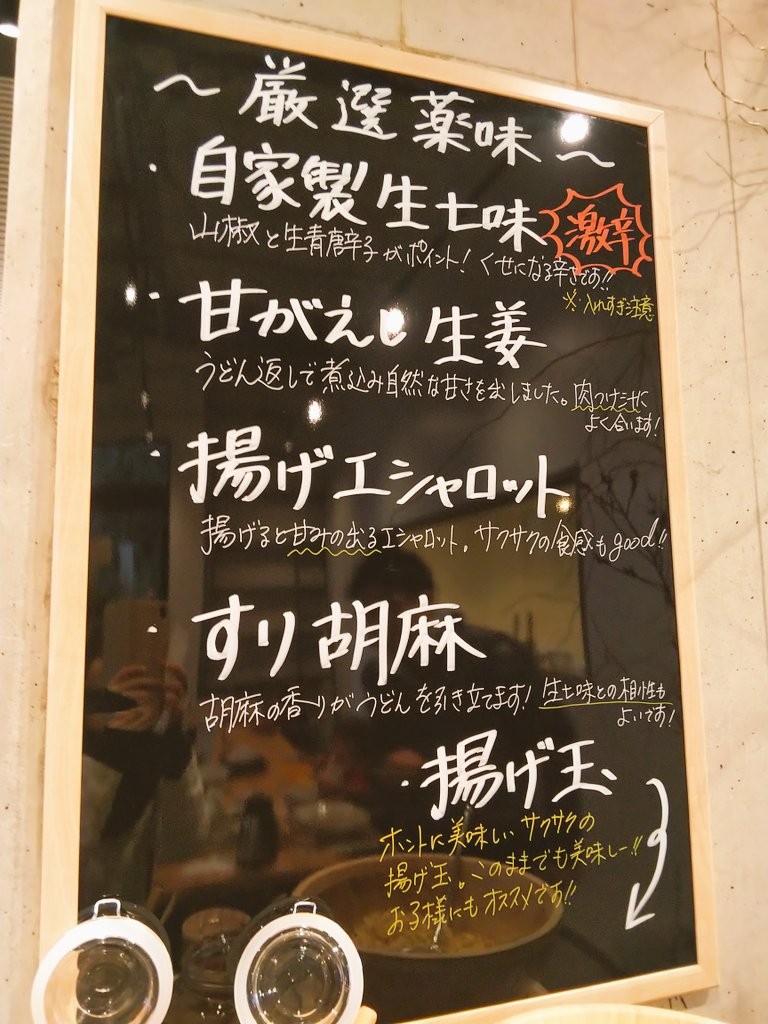 ～厳選薬味～
・自家製生七味
激辛
山椒と生青唐辛子がポイント！くせになる辛さです!!
※入れすぎ注意
・甘がえし生姜
うどん返しで煮込み自然な甘さを出しました。肉つけ汁に
よく合います！
・揚げエシャロット
揚げると甘みの出るエシャロット。サクサクの食感もgood!!
・すり胡麻
胡麻の香りがうどんを引き立てます！生七味との相性も
よいです！
・揚げ玉
ホントに美味しいサクサクの
揚げ玉。このままでも美味しー!!
お子様にもオススメです!!